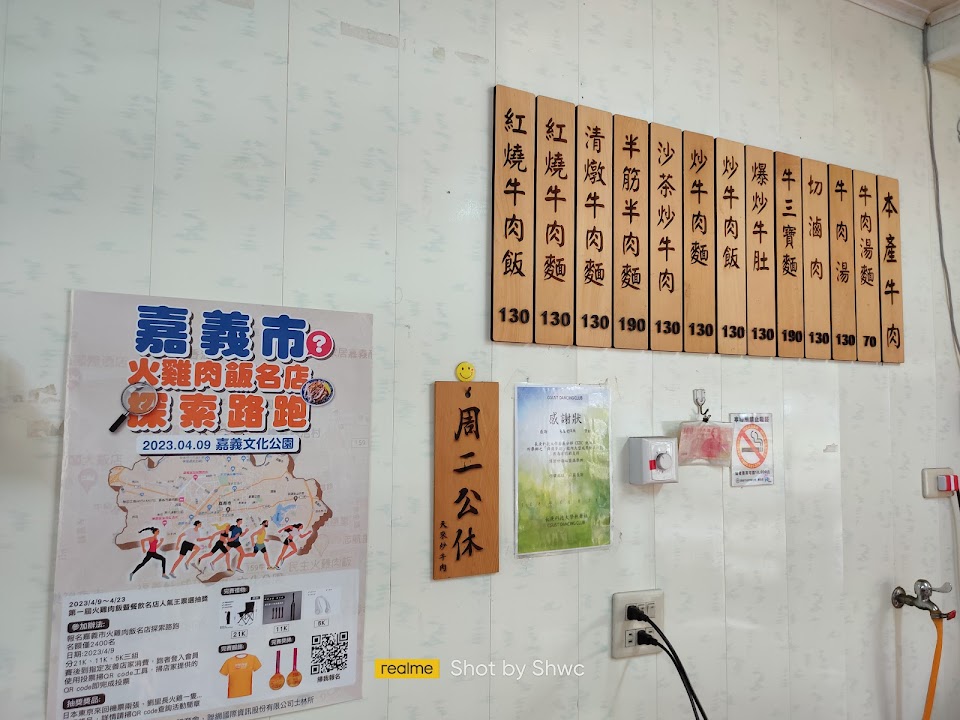 紅燒牛肉飯 130
紅燒牛肉麵 130
清燉牛肉麵 130
半筋半肉麵 190
沙茶炒牛肉 130
炒牛肉麵 130
炒牛肉飯 130
爆炒牛肚 130
牛三寶麵 190
切滷肉 130
牛肉湯 130
牛肉湯麵 70
本產牛肉
嘉義市
火雞肉飯名店
探索路跑
2023.04.09 嘉義文化公園
2023/4/9～4/23
第一屆火雞肉飯暨餐飲名店人氣王票選抽獎
參加辦法:
報名嘉義市火雞肉飯名店探索路跑
名額僅2400名
日期:2023/4/9
分21K、11K、5K三組
賽後到指定友善店家消費，跑者登入會員
QR code即完成投票
抽獎獎品:
21K
11K
5K
掃我報名
周二公休
天泉炒牛肉
感謝狀
realme Shot by Shwc